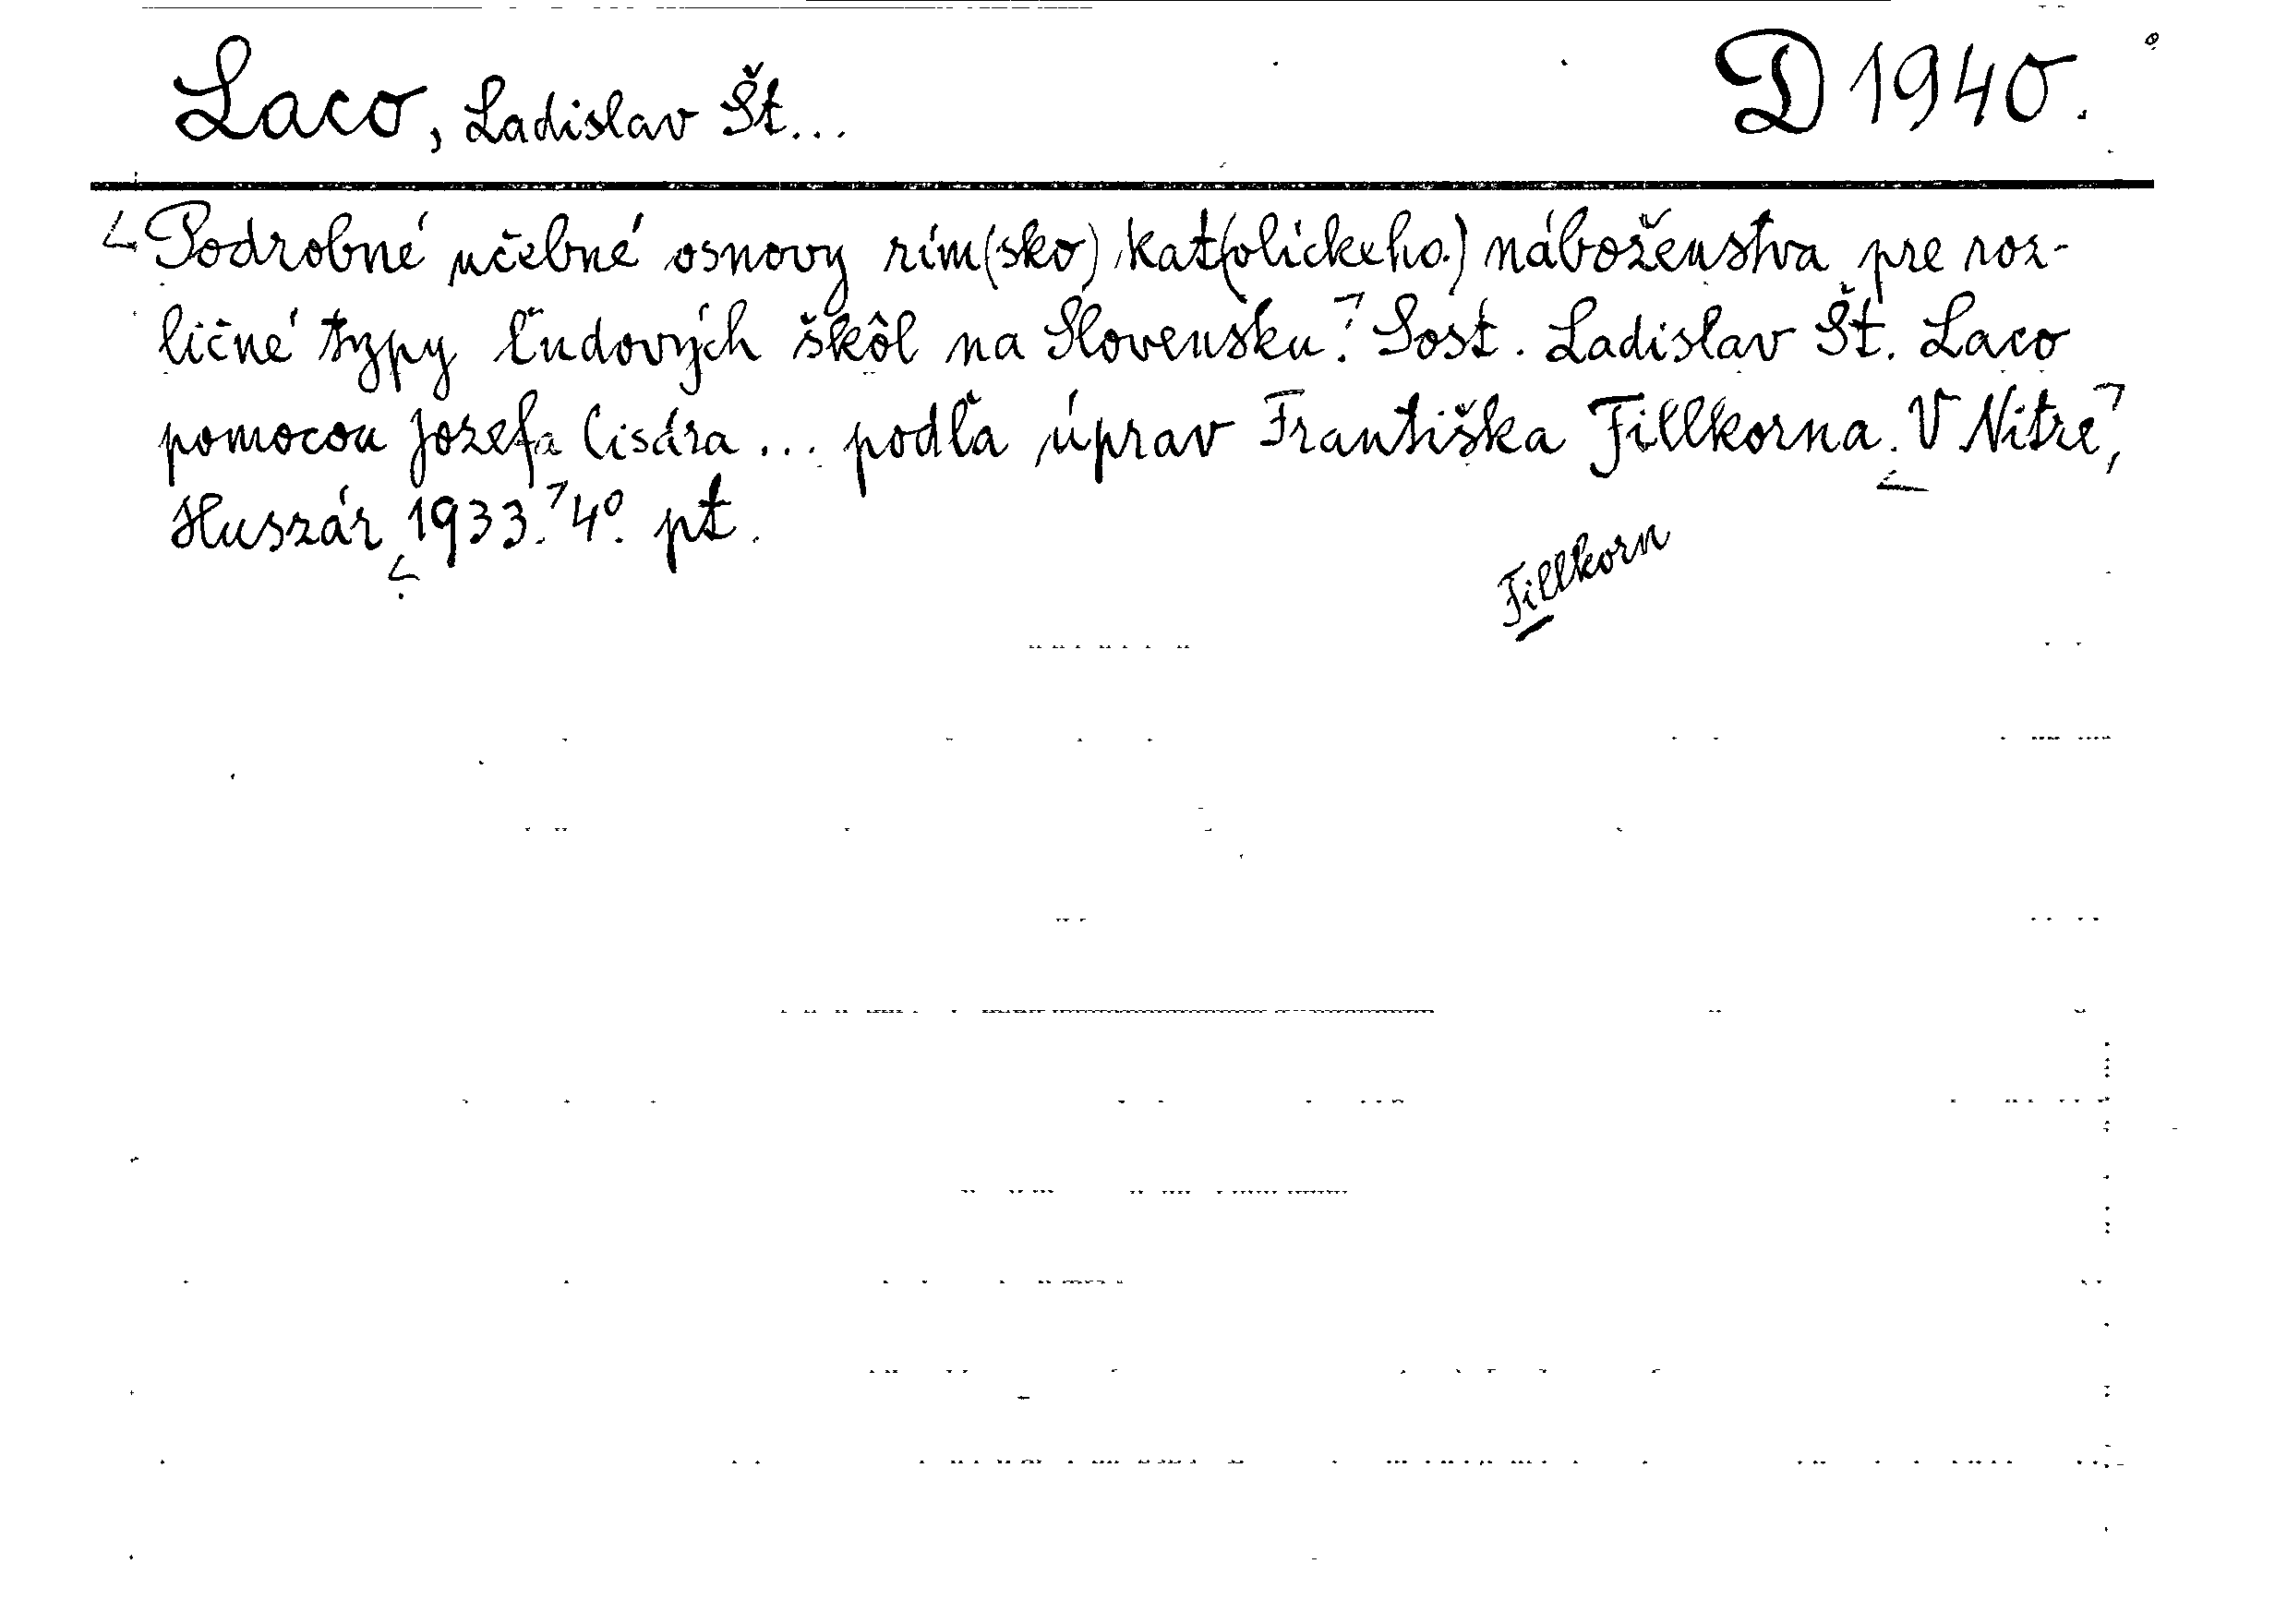 Laco, Ladislav Št... D 1940.
Podrobné učebné osnovy rím(sko) kat(olíckeho.) náboženstva pre roz-
ličné typy ľudových škôl na Slovensku. Sost. Ladislav Št. Laco
pomocou Jozefa Cisára ... podľa úprav Františka Fillkorna. V Nitre,
Huszár 1933. 4°. pt.
Fillkorn